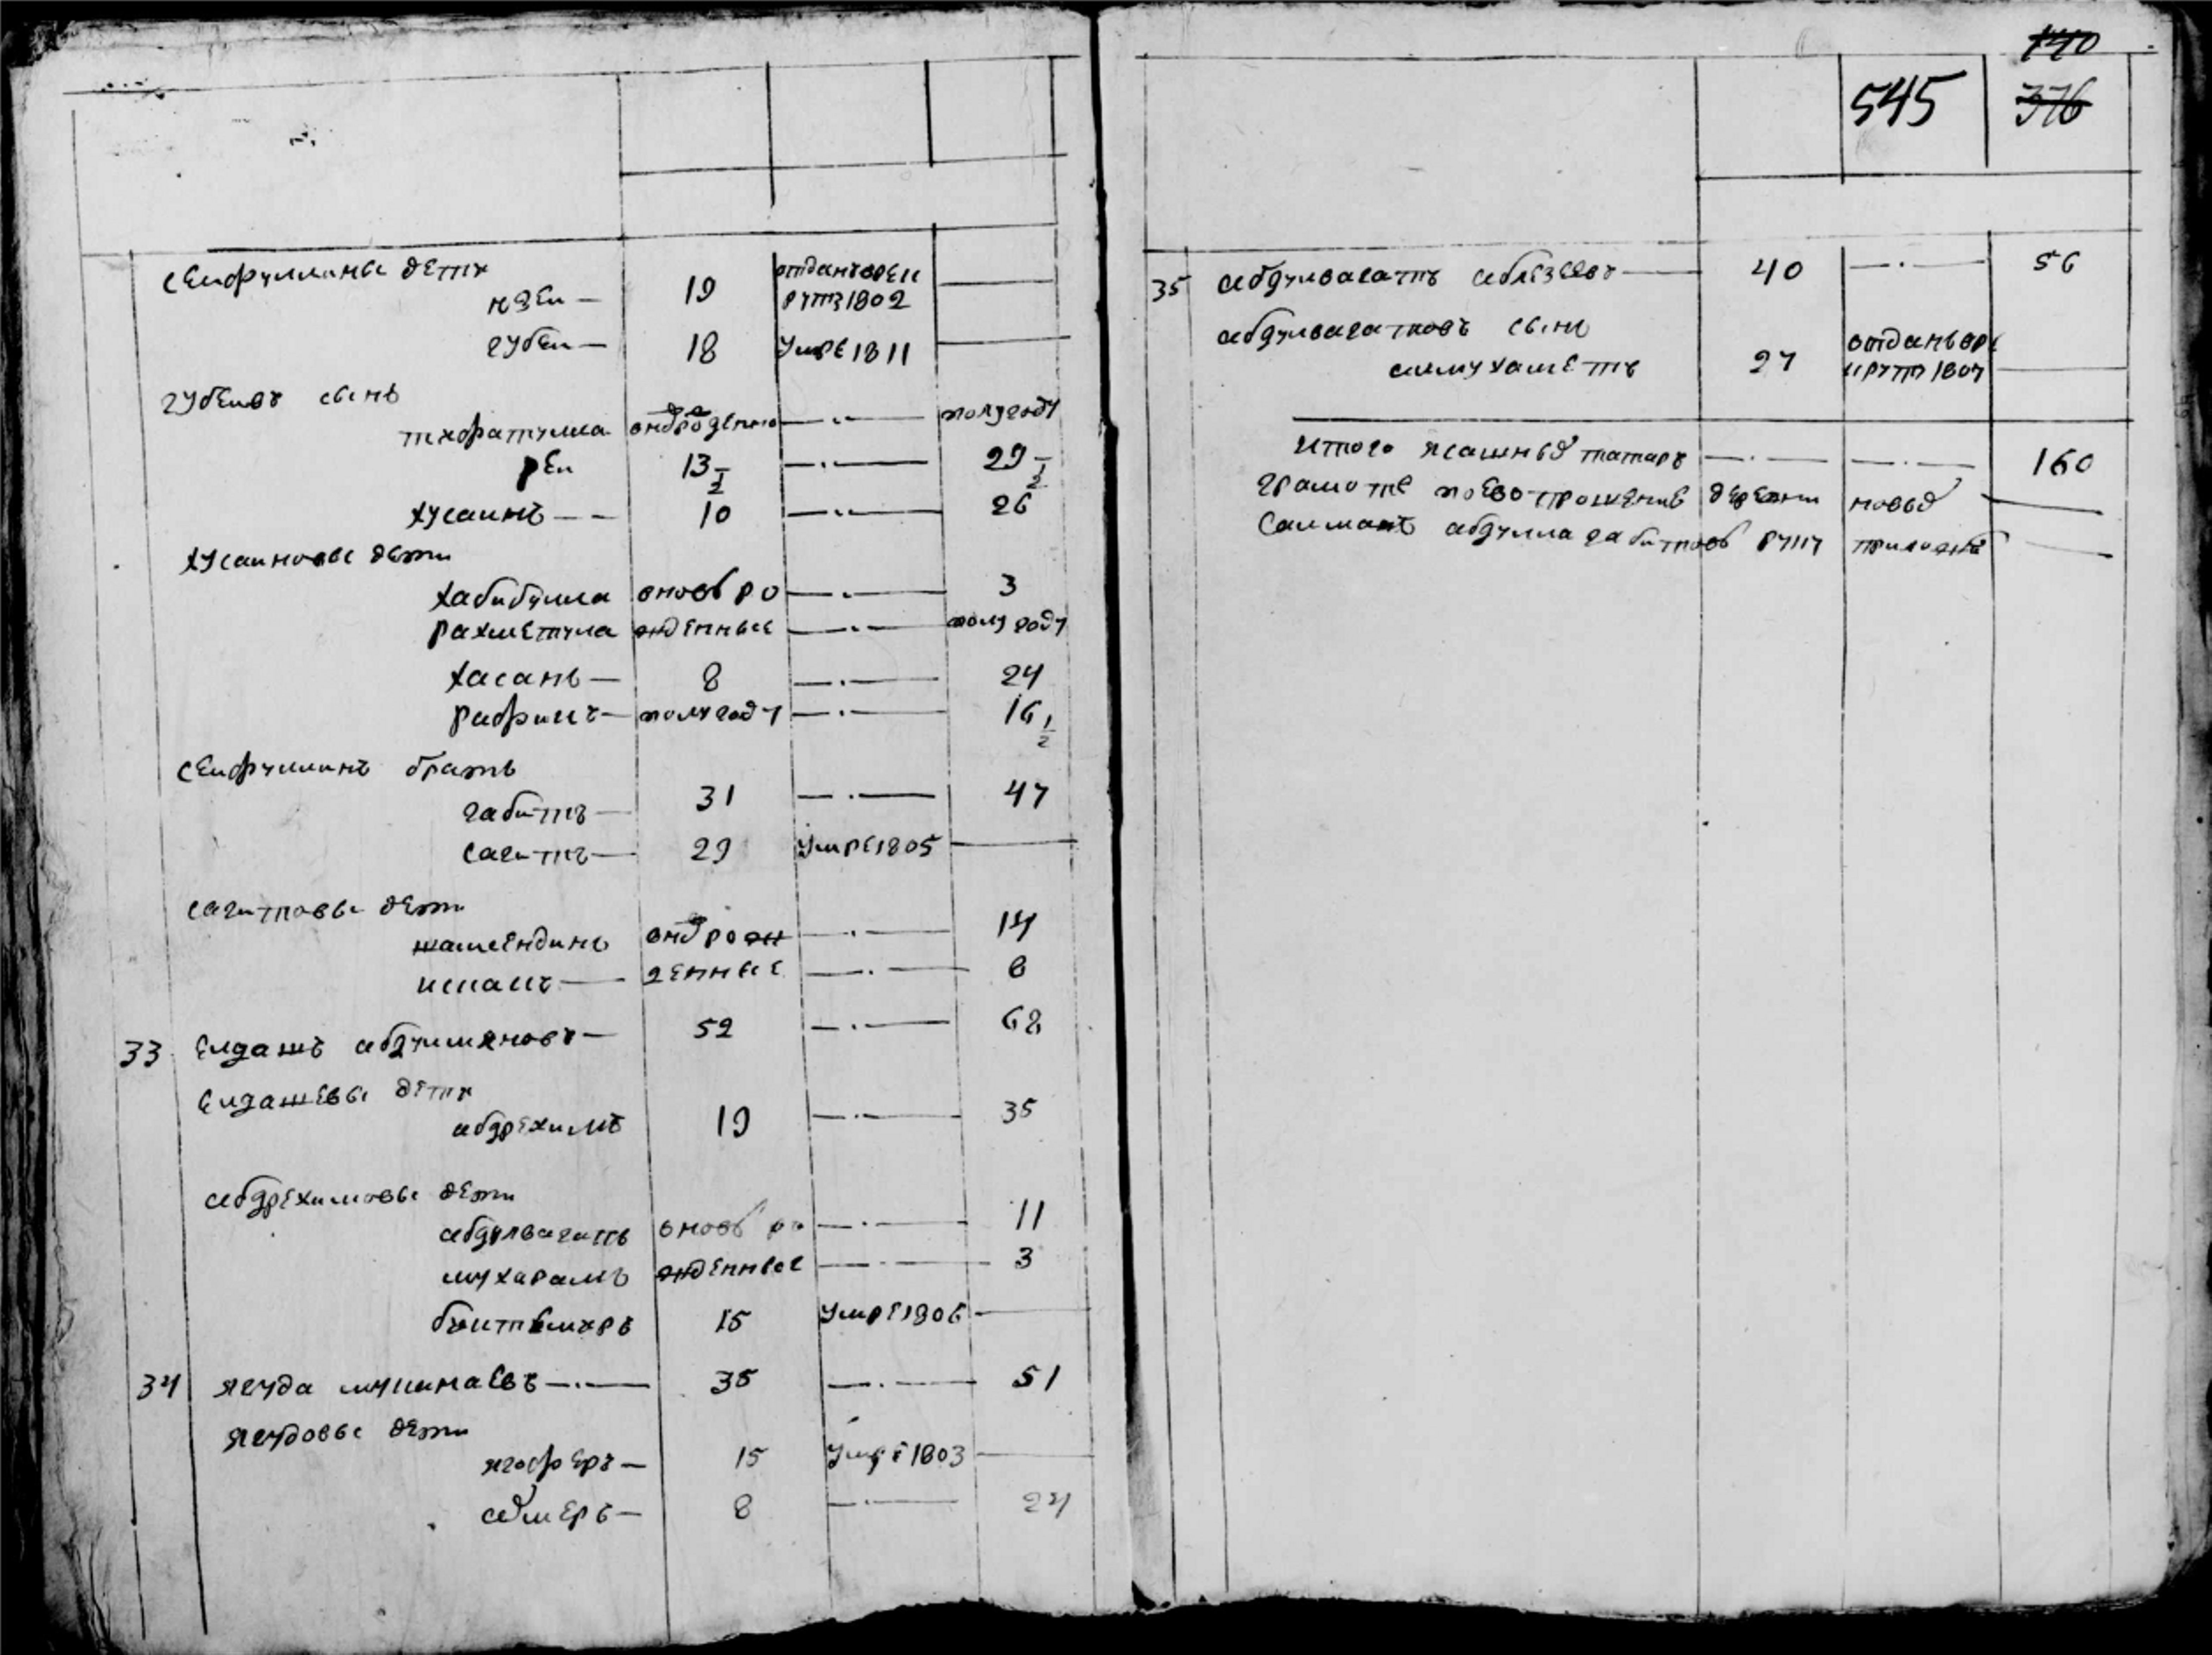 Сеифуллины дети
изеи — 19 отданъ вреи —
рутз 1802
губеи — 18 умре 1811 —
губеивъ сынъ
тифатулла вновьрожденно — полугоду
реи 13 1/2 — 29 1/2
хусаинъ — 10 — 26
хусаиновы дети
хабибулла вновь ро — 3
рахметулла жденные — полугоду
хасанъ — 8 — 24
рафикъ — полугоду — 16 1/2
Сеифуллинъ братъ
габитъ — 31 — 47
сагитъ — 29 умре 1805 —
сагитовы дети
шамсендинъ внов рож — 14
исламъ — денные — 8
33 елдашъ абдулменовъ — 52 — 68
елдашевы дети
абдрехимъ 19 — 35
абдрехимовы дети
абдулвагапъ вновь ро — 11
мухарамъ жденные — 3
бектемиръ 15 умре 1806 —
34 ягуда муслимаевъ — 35 — 51
ягудовы дети
ягоферъ — 15 умре 1803 —
амеръ — 8 — 24
140
545 376
35 абдулвагатъ аблезеевъ — 40 — 56
абдулвагатовъ сынъ
алмухаметъ 27 отданъ вре
ирутъ 1807 —
итого ясашныхъ татаръ — — 160
грамоте неево прошение деревни новых —
Салманъ абдулла габитовъ руку приложил —